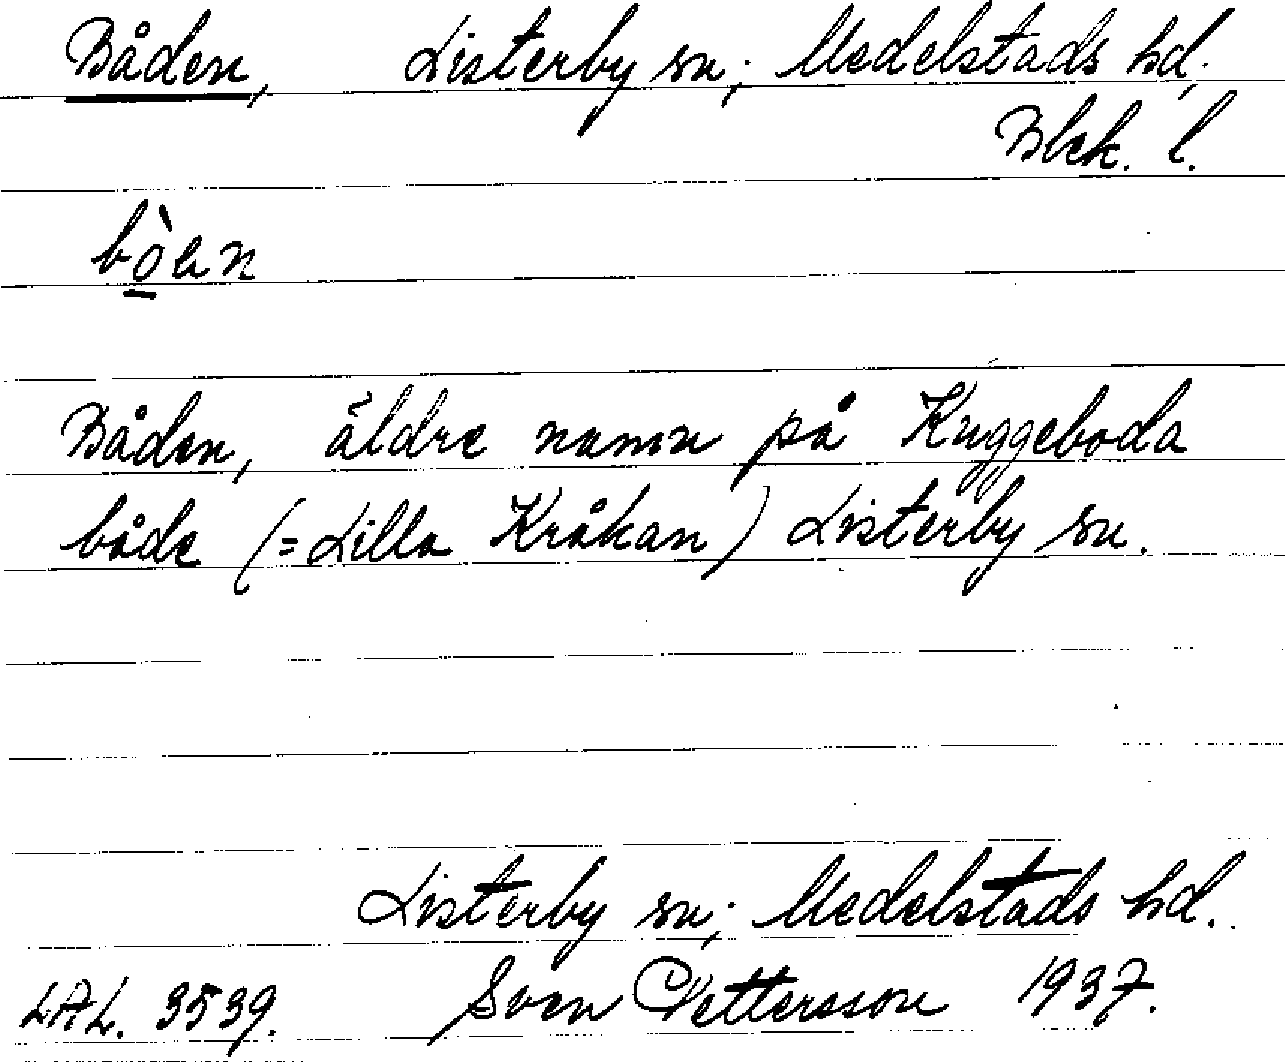 Båden, Listerby sn; Medelstads hd.
Blek. l.
bò̲en
Båden, äldre namn på Kuggeboda
både (= Lilla Kråkan) Listerby sn.
Listerby sn; Medelstads hd.
L.A.L. 3539. Sven Pettersson 1937.